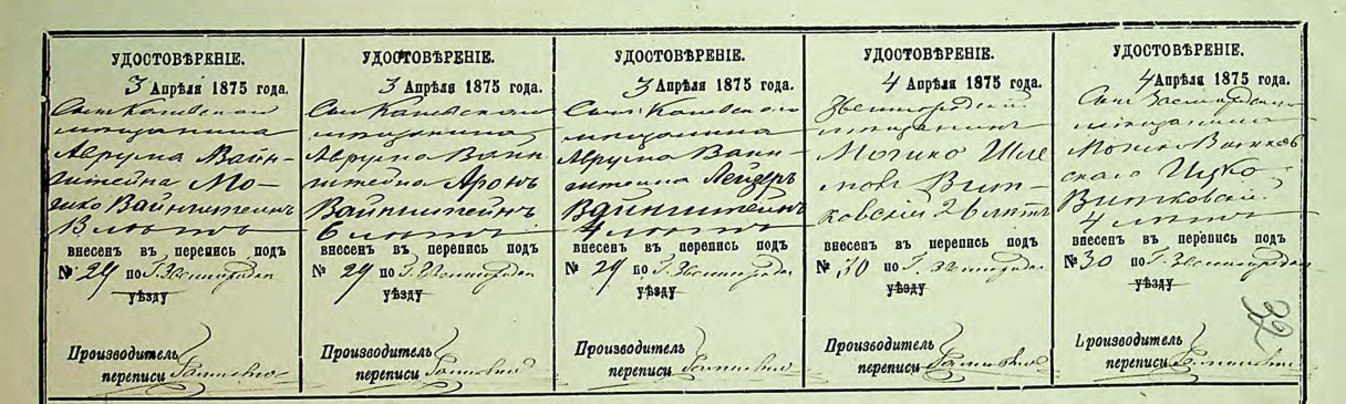 УДОСТОВѢРЕНІЕ.
3 Апрѣля 1875 года.
Сынъ Каневскаго
мещанина
Аврума Вайн-
штейна Мо-
шко Вайнштейнъ
лѣтъ
внесенъ въ перепись подъ
№ 29 по Г. Звенигородкѣ
уѣзду
Производитель
переписи
УДОСТОВѢРЕНІЕ.
3 Апрѣля 1875 года.
Сынъ Каневскаго
мещанина
Аврума Вайн-
штейна Аронъ
Вайнштейнъ
6 лѣтъ
внесенъ въ перепись подъ
№ 29 по Г. Звенигородкѣ
уѣзду
Производитель
переписи
УДОСТОВѢРЕНІЕ.
3 Апрѣля 1875 года.
Сынъ Каневскаго
мещанина
Аврума Вайн-
штейна Лейзеръ
Вайнштейнъ
4 лѣтъ
внесенъ въ перепись подъ
№ 29 по Г. Звенигородкѣ
уѣзду
Производитель
переписи
УДОСТОВѢРЕНІЕ.
4 Апрѣля 1875 года.
Звенигородскій
мещанинъ
Мошко Шле
мовъ Вит-
ковскій 26 лѣтъ
внесенъ въ перепись подъ
№ 30 по Г. Звенигородкѣ
уѣзду
Производитель
переписи
УДОСТОВѢРЕНІЕ.
4 Апрѣля 1875 года.
Сынъ Звенигородскаго
мещанина
Мошка Витков
скаго Ицко
Витковскій
4 лѣтъ
внесенъ въ перепись подъ
№ 30 по Г. Звенигородкѣ
уѣзду
32
Производитель
переписи